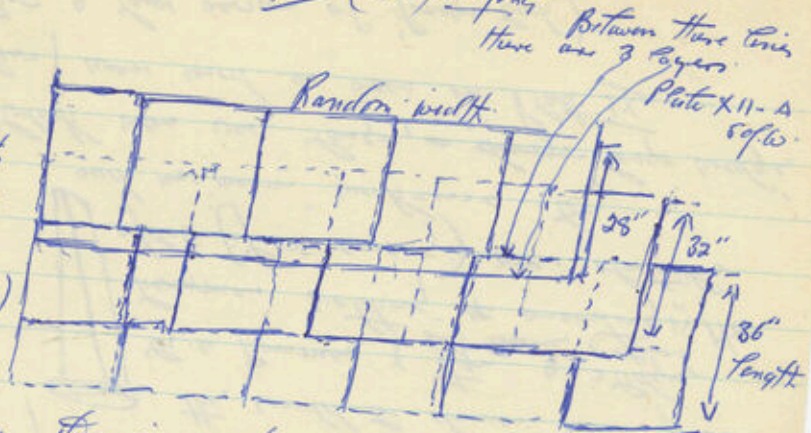 Between these lines
there are 3 layers.
Plate XII-A
Random width
28"
32"
36"
length